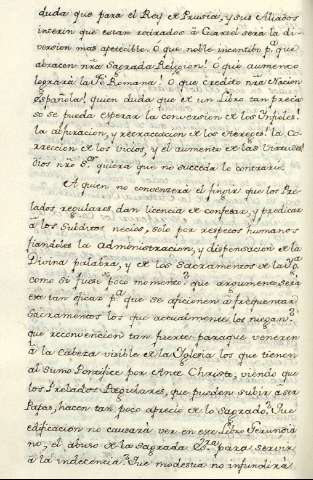 duda que para el Rey de Prusia, y sus Aliados
interin que estan retirados à Quartel será la di-
version mas apetecible. O que noble incentibo pª. que
abracen nrã Sagrada Religion! O que aumento
lograrà la Fè Romana! O que credito nrã Nacion
Española! quien duda que de un Libro tan precio
so se pueda esperar la conversion de los Infieles!
la abjuracion, y retractacion de los Hereges! la Co-
rreccion de los Vicios, y el aumento de las Virtudes
Dios nrõ Sor. quiera que no suceda lo contrario.
A quien no convencerà el fingir que los Pre-
lados regulares dan licencia de confesar, y predicar
à los Subditos necios, solo por respetos humanos
fiandoles la administracion, y dispensacion de la
Divina palabra, y de los Sacramentos de la Yga.
como si fuese de poco momento? que argumento serà
este tan eficaz pª. que se aficionen à frequentar
Sacramentos los que actualmente los niegan?
que reconvencion tan fuerte para que veneren
à la Cabeza visible de la Yglesia los que tienen
al Sumo Pontifice por Ante Christo, viendo que
los Prelados Regulares, que pueden subir à ser
Papas, hacen tan poco aprecio de lo Sagrado? Que
edificacion no causarà ver en este Libro Gerundia
no, el abuso de la Sagrada Esra. para servir
à la indecencia? Que modestia no infundirà